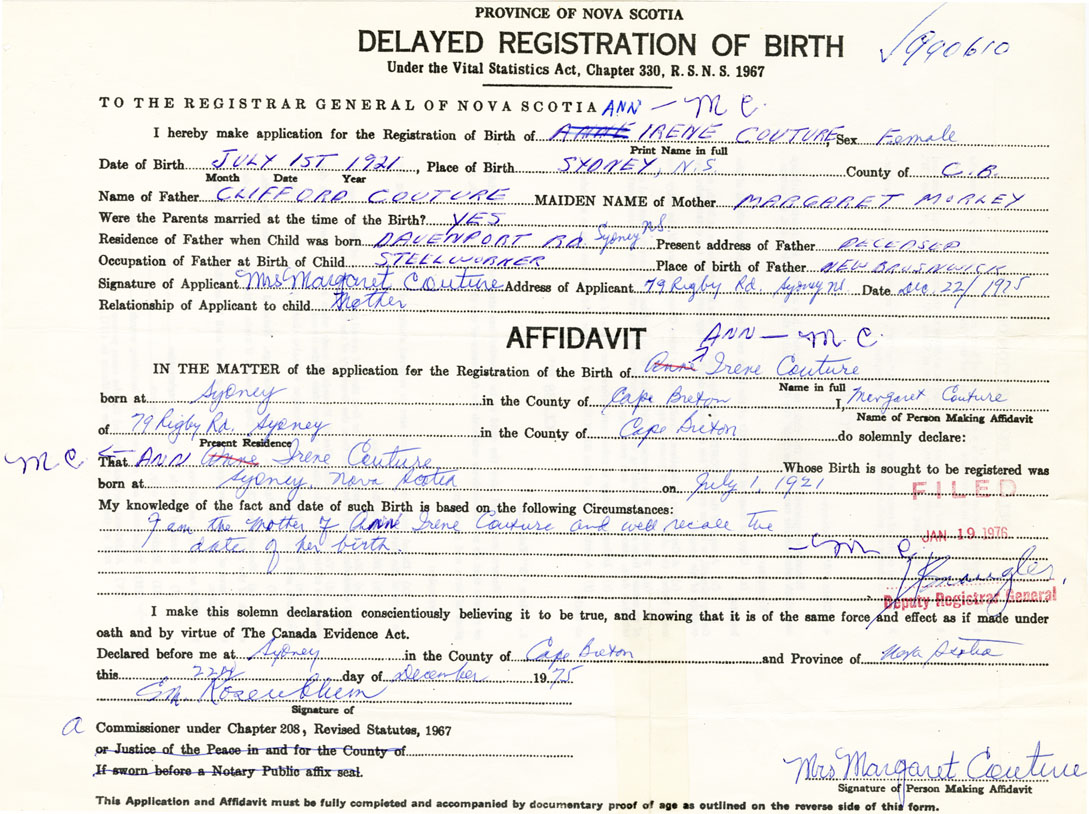 PROVINCE OF NOVA SCOTIA
DELAYED REGISTRATION OF BIRTH
990610
Under the Vital Statistics Act, Chapter 330, R. S. N. S. 1967
TO THE REGISTRAR GENERAL OF NOVA SCOTIA ANN — M C.
I hereby make application for the Registration of Birth of ANNE IRENE COUTURE, Sex Female
Print Name in full
Date of Birth JULY 1ST 1921, Place of Birth SYDNEY, N.S. County of C.B.
Month Date Year
Name of Father CLIFFORD COUTURE MAIDEN NAME of Mother MARGARET MORLEY
Were the Parents married at the time of the Birth? YES
Residence of Father when Child was born DAVENPORT RD Sydney NS Present address of Father DECEASED
Occupation of Father at Birth of Child STEELWORKER Place of birth of Father NEW BRUSNWICK
Signature of Applicant Mrs Margaret Couture Address of Applicant 79 Rigby Rd. Sydney NS Date Dec. 22/1975
Relationship of Applicant to child Mother
AFFIDAVIT ANN — M. C.
IN THE MATTER of the application for the Registration of the Birth of Anne Irene Couture
Name in full
born at Sydney in the County of Cape Breton I, Margaret Couture
Name of Person Making Affidavit
of 79 Rigby Rd. Sydney in the County of Cape Breton do solemnly declare:
Present Residence
M C. That ANN Anne Irene Couture Whose Birth is sought to be registered was
born at Sydney, Nova Scotia on July 1, 1921
FILED
My knowledge of the fact and date of such Birth is based on the following Circumstances:
I am the Mother of Ann Irene Couture and well recall the
date of her birth.
JAN 19 1976
— M C.
Deputy Registrar General
I make this solemn declaration conscientiously believing it to be true, and knowing that it is of the same force and effect as if made under
oath and by virtue of The Canada Evidence Act.
Declared before me at Sydney in the County of Cape Breton and Province of Nova Scotia
this 22nd day of December 1975
Signature of
a Commissioner under Chapter 208, Revised Statutes, 1967
or Justice of the Peace in and for the County of
If sworn before a Notary Public affix seal.
Mrs Margaret Couture
Signature of Person Making Affidavit
This Application and Affidavit must be fully completed and accompanied by documentary proof of age as outlined on the reverse side of this form.